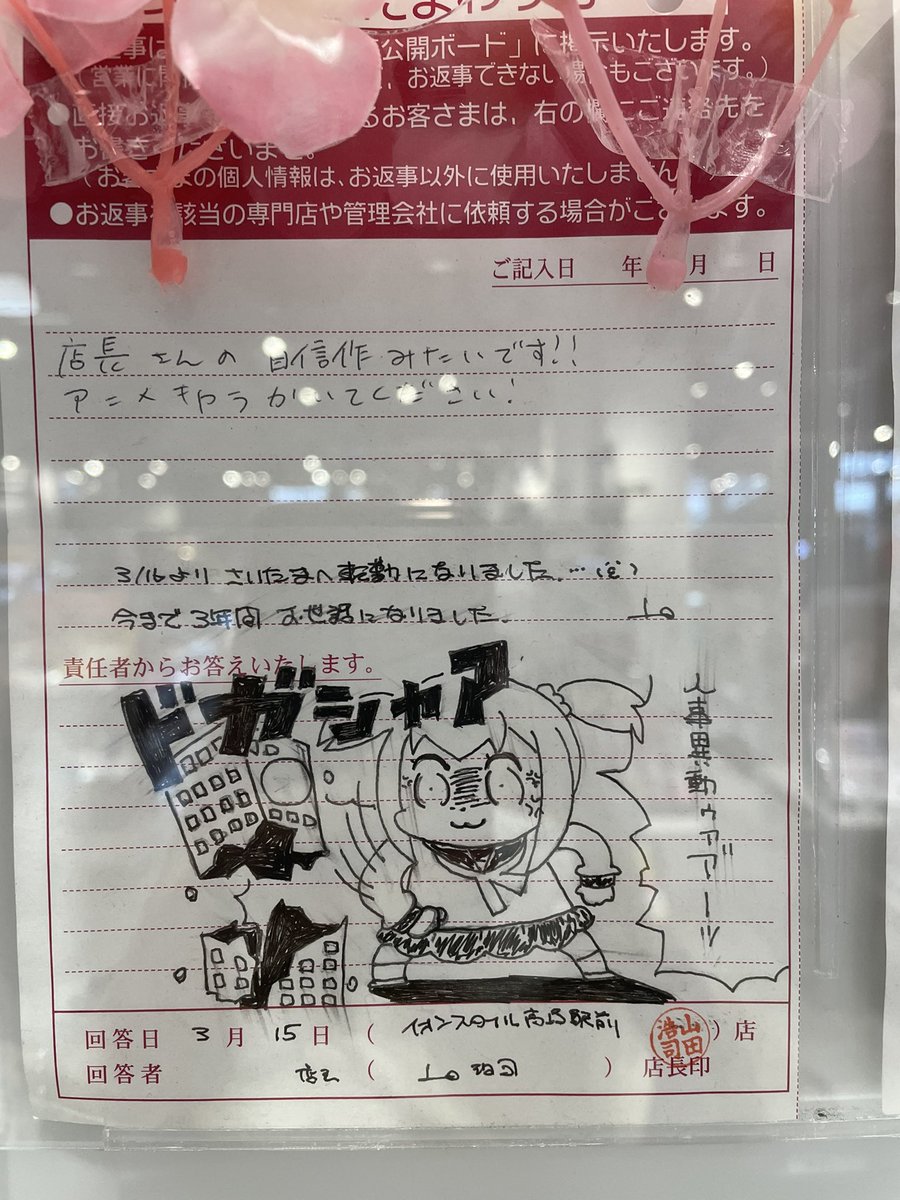 公開ボード」に掲示いたします。
お返事できない場合もございます。）
お客さまは、右の欄にご連絡先を
お書きくださいませ。
の個人情報は、お返事以外に使用いたしません
●お返事を該当の専門店や管理会社に依頼する場合がございます。
ご記入日 年 月 日
店長さんの自信作みたいです!!
アニメキャラかいてください!
3/16より さいたまへ転勤になりました…
今まで3年間 お世話になりました。
責任者からお答えいたします。
ドガシャア
人事異動ゥアアーッ
回答日 3月15日（イオンスタイル 駅前）店
回答者 店長（ 浩司）店長印
山田浩司